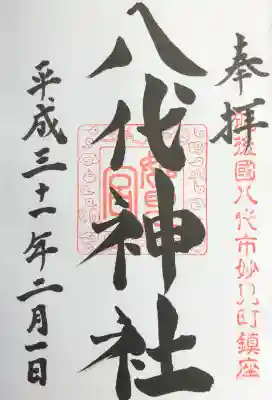 奉拝
肥後國八代市妙見町鎮座
八代神社
妙見宮
平成三十一年二月一日